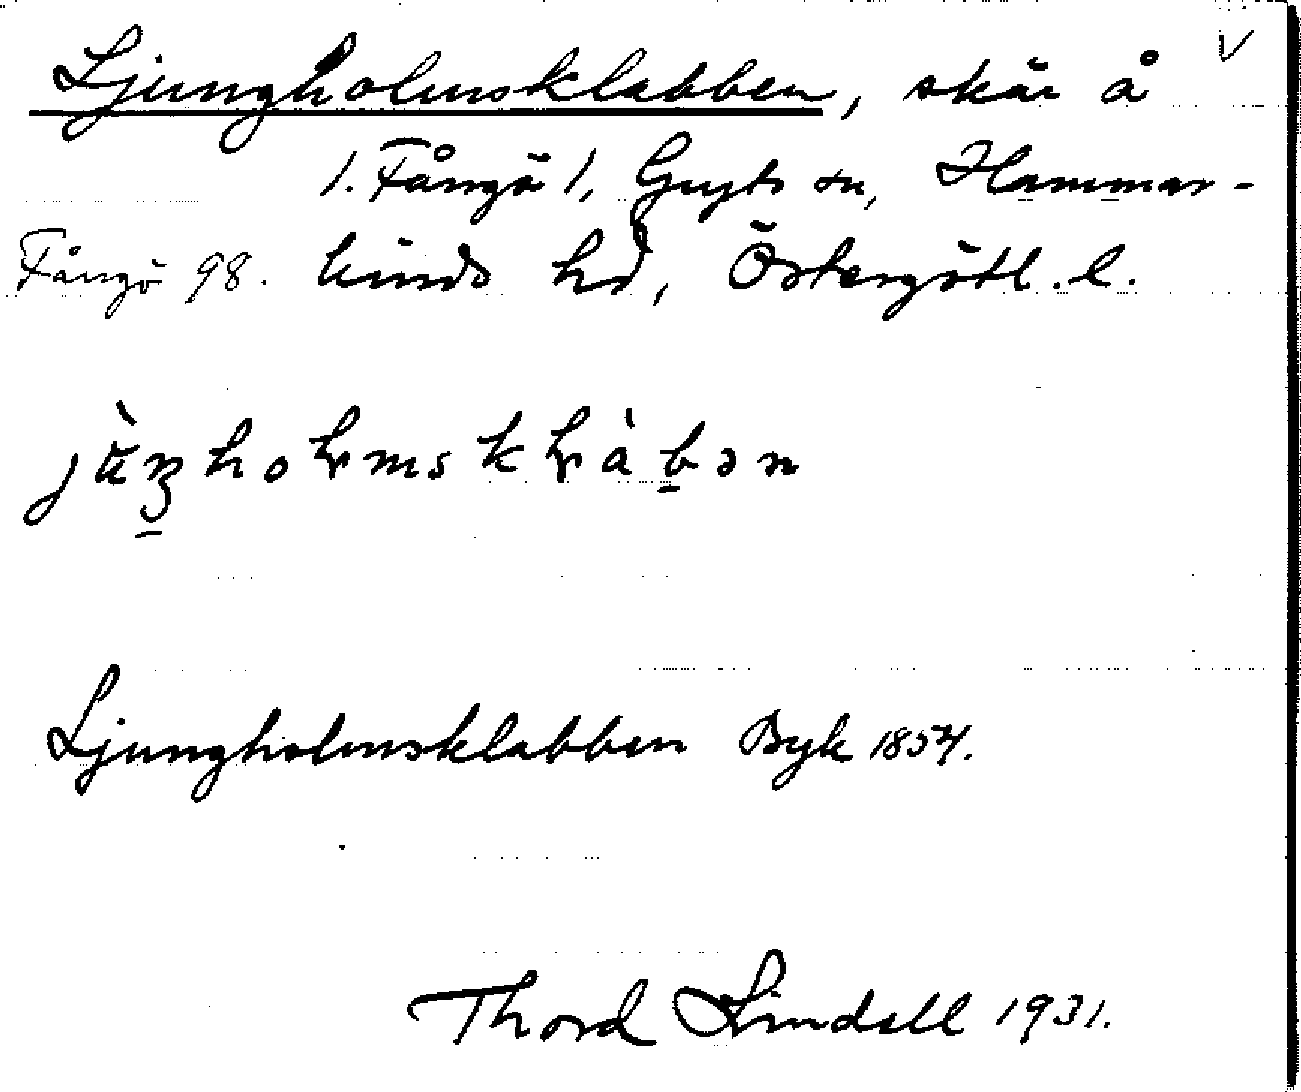 Ljungholmsklabben, skär å
1. Fångö 1, Gryts sn, Hammar-
Fångö 98. kinds hd, Östergötl. l.
Ljungholmsklabben Byk 1857.
Thord Lindell 1931.